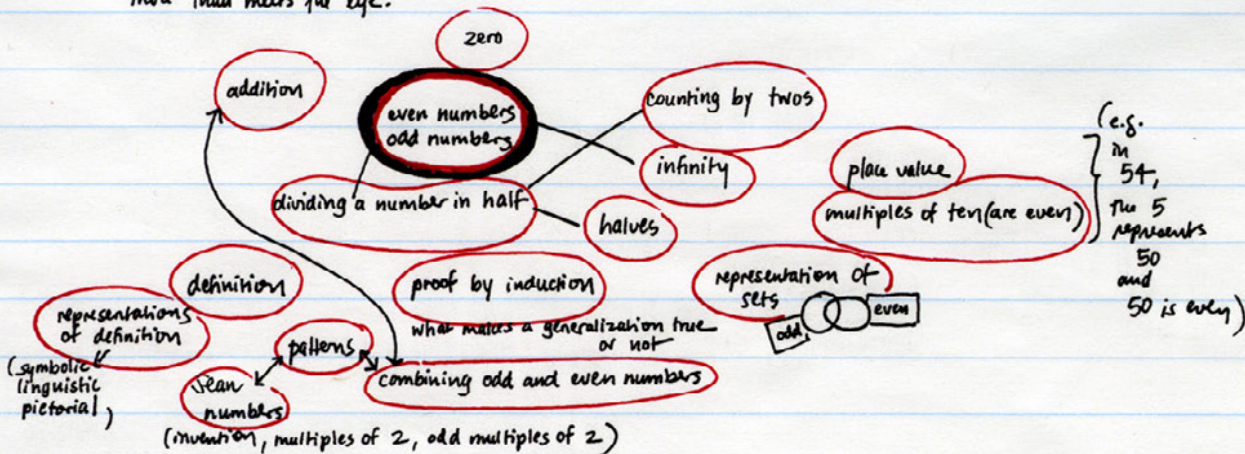 more than meets the eye.
zero
addition
even numbers
odd numbers
counting by twos
infinity
dividing a number in half
halves
place value
multiples of ten (are even)
(e.g.
in
54,
the 5
represents
50
and
50 is even)
definition
representations
of definition
(symbolic
linguistic
pictorial)
proof by induction
what makes a generalization true
or not
representation of
sets
odd
even
patterns
combining odd and even numbers
Sean
numbers
(invention, multiples of 2, odd multiples of 2)